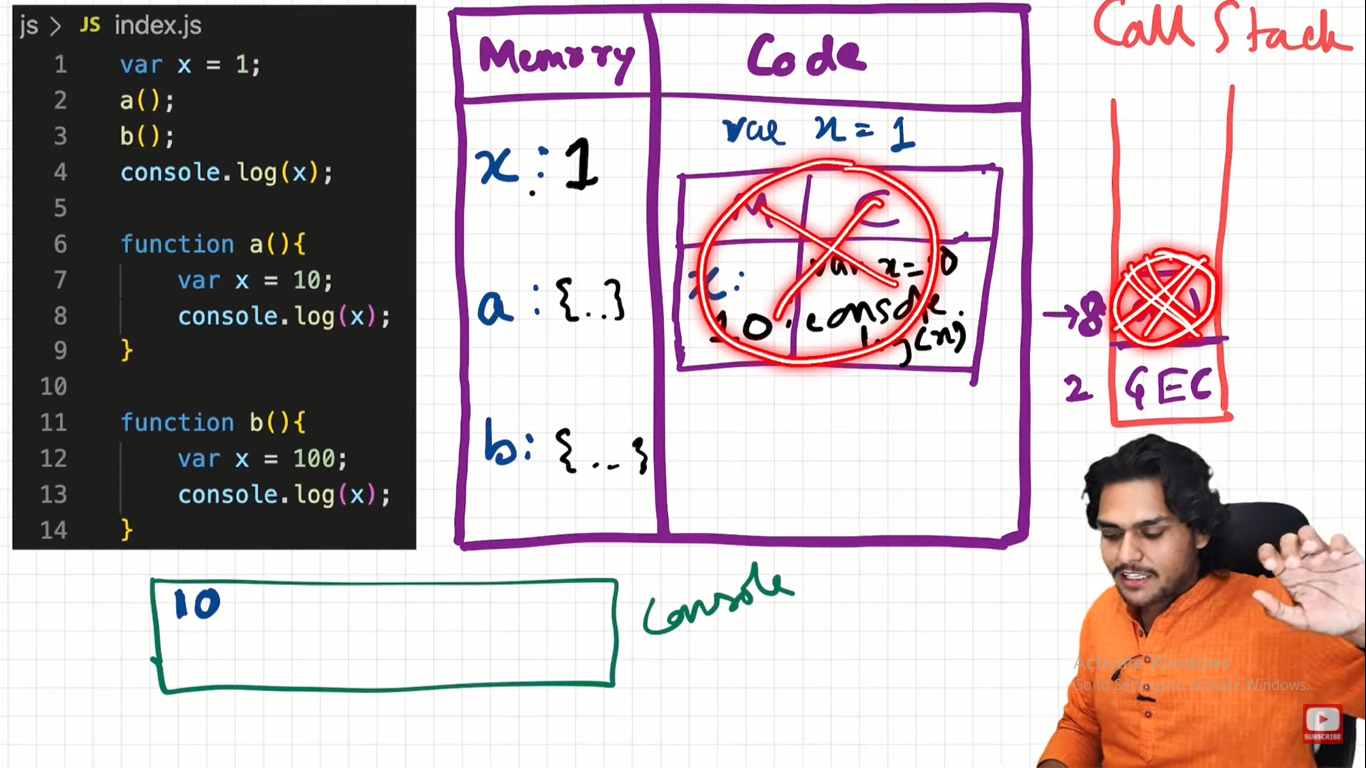 js > JS index.js
1 var x = 1;
2 a();
3 b();
4 console.log(x);
5
6 function a(){
7 var x = 10;
8 console.log(x);
9 }
10
11 function b(){
12 var x = 100;
13 console.log(x);
14 }
Memory
Code
x : 1
a : {..}
b : {...}
var x = 1
M C
x:
10
var x = 10
console.
log(x)
Call Stack
→8
2 GEC
10
Console
Activate Windows
Go to Settings to activate Windows.
SUBSCRIBE